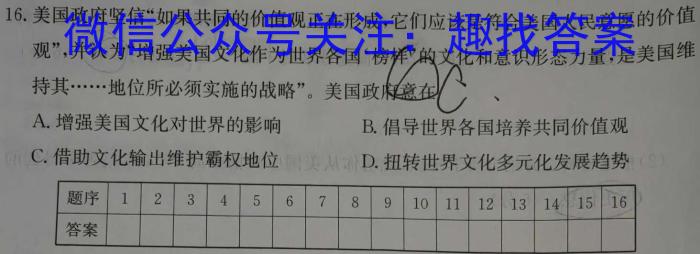 16. 美国政府坚信“如果共同的价值观正在形成,它们应该是符合美国人民意愿的价值
微信公众号关注：趣找答案
观”,并认为“增强美国文化作为世界各国‘榜样’的文化和意识形态力量,是美国维
持其……地位所必须实施的战略”。美国政府意在
A. 增强美国文化对世界的影响 B. 倡导世界各国培养共同价值观
C. 借助文化输出维护霸权地位 D. 扭转世界文化多元化发展趋势
题序 1 2 3 4 5 6 7 8 9 10 11 12 13 14 15 16
答案